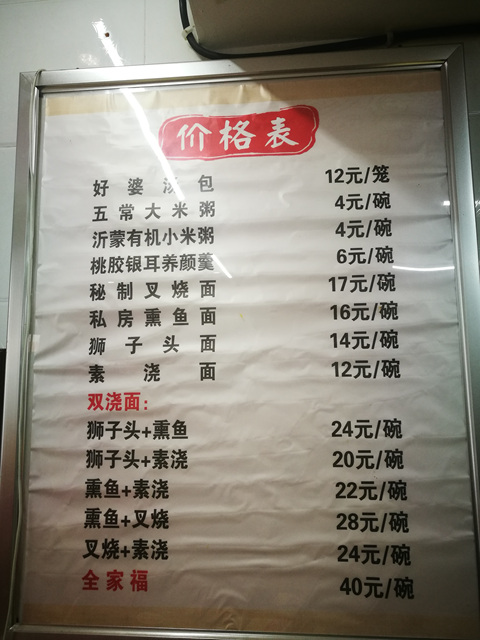 价格表
好婆汤包 12元/笼
五常大米粥 4元/碗
沂蒙有机小米粥 4元/碗
桃胶银耳养颜羹 6元/碗
秘制叉烧面 17元/碗
私房熏鱼面 16元/碗
狮子头面 14元/碗
素浇面 12元/碗
双浇面：
狮子头+熏鱼 24元/碗
狮子头+素浇 20元/碗
熏鱼+素浇 22元/碗
熏鱼+叉烧 28元/碗
叉烧+素浇 24元/碗
全家福 40元/碗